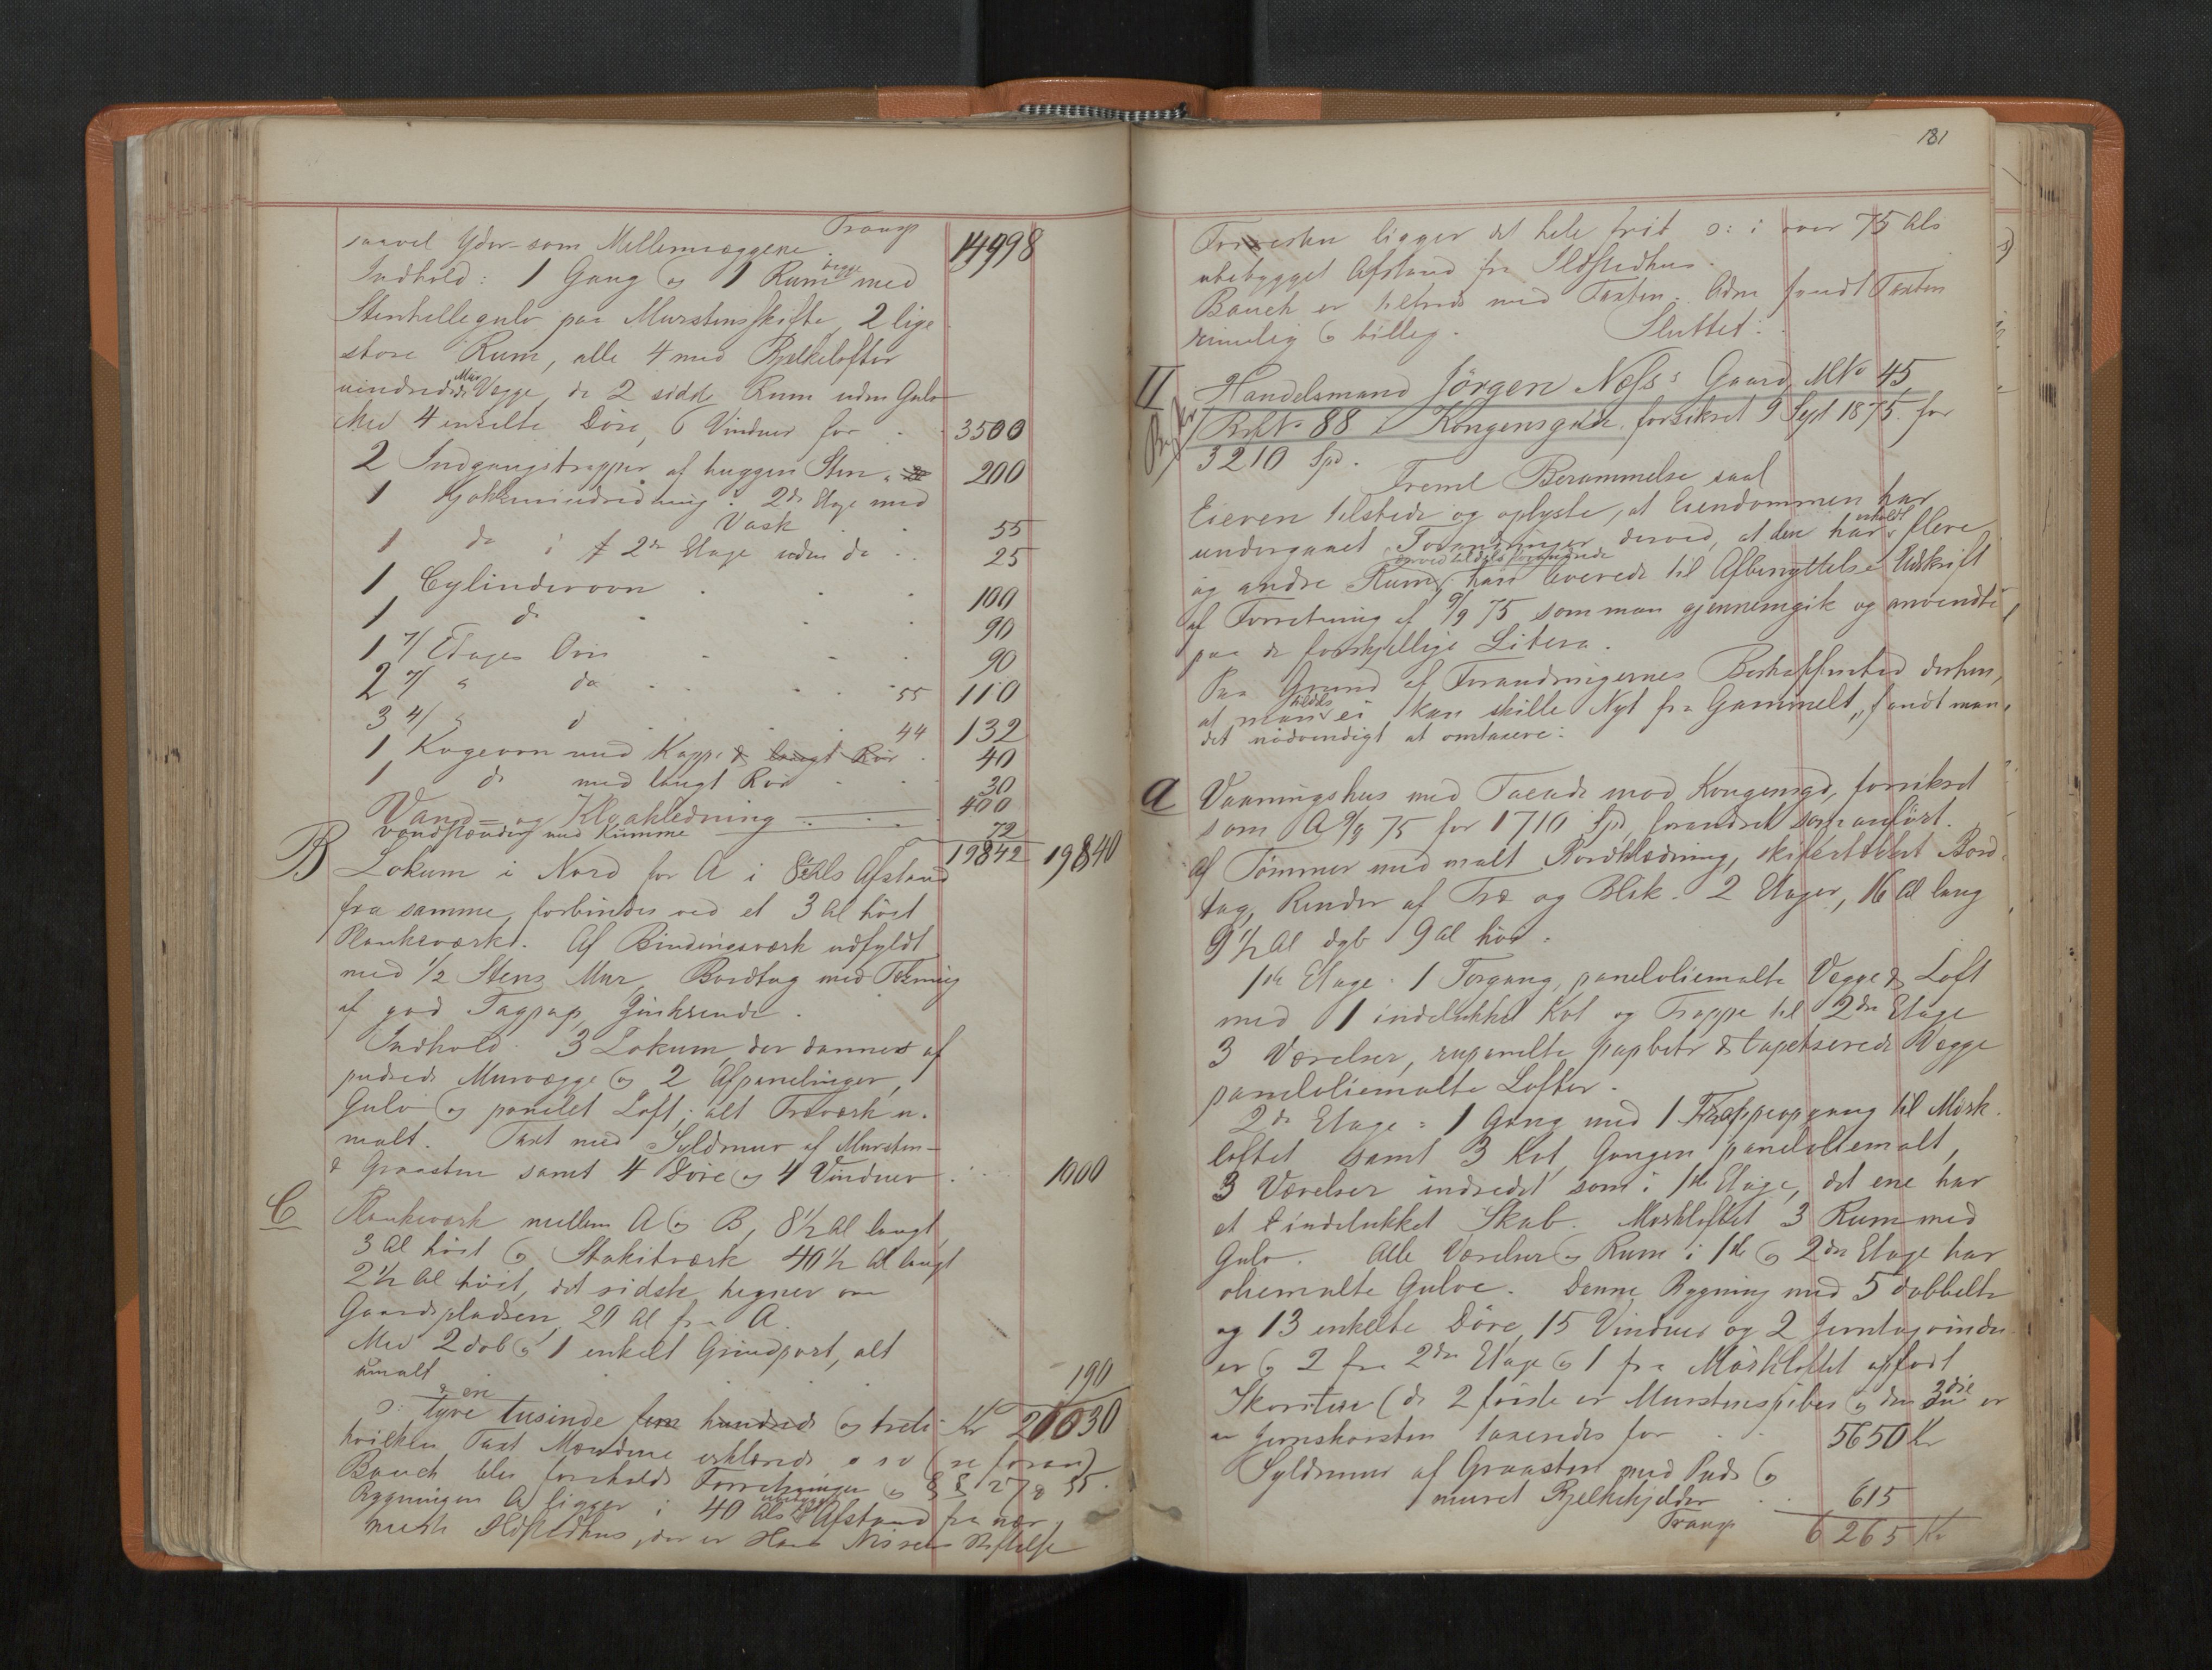 Transp 14998
saavel Yder- som Mellemvæggene.
Indhold: 1 Gang og 1 Rum begge med
Stenhellegulv paa Murstensskifte, 2 lige
store Rum, alle 4 med Bjelkelofter
uindredede Mur Vægge, de 2 sidste Rum uden Gulv
Med 4 enkelte Döre, 6 Vinduer for 3500
2 Indgangstrapper af huggen Sten 200
1 Kjökkenindredning i 2de Etage med
Vask 55
1 do i 2de Etage uden do 25
1 Cylinderovn 100
1 do 90
1 7/ Etages Ovn 90
2 " do 55 110
3 4/ " d 44 132
1 Kogeovn med Kappe & langt Rör 40
1 do med langt Rör 30
Vand- og Kloakledning 400
vandstænder med Kumme 72
19842 19840
B Lokum i Nord for A i Als Afstand
fra samme, forbindes ved et 3 Al höit
Plankeværk. Af Bindingsværk udfyldt
med 1/2 Stens Mur, Bordtag med Tækning
af god Tagpap, Zinkrende.
Indhold: 3 Lokum, der dannes af
pudsede Murvægge og 2 Afpanelinger,
Gulv og panelet Loft; alt Træværk u-
malt. Taxt med Syldmur af Mursten-
& Graasten samt 4 Döre og 4 Vinduer 1000
C Plankeværk mellem A og B, 8 1/2 Al langt,
3 Al höit og Stakitværk 40 1/2 Al langt
2 1/2 Al höit, det sidste hegner om
Gaardspladsen, 20 Al fra A.
Med 2 dob og 1 enkelt Grindport, alt
umalt 190
ɔ: tyve & en tusinde fem hundrede og treti Kr 21030
hvilken Taxt Mændene erklærede o s v (se foran)
Bauch blev foreholdt Forretningen og §§ 27 & 35.
Bygningen A ligger i 40 Als ubebygget Afstand fra nær-
meste Ildstedhus, der er Hans Nissens Stiftelse
181
Forresten ligger det hele frit ɔ: i over 75 Als
ubebygget Afstand fra Ildstedhus.
Bauch er tilfreds med Taxten. Adm fandt Taxten
rimelig og billig. Sluttet.
II Handelsmand Jörgen Næss's Gaard, M No 45,
Br No 88 i Kongensgade, forsikret 9 Sept 1875 for
3210 Spd.
Freml Berammelse saal
Eieren tilstede og oplyste, at Eiendommen har
undergaaet Forandringer derved, at den har erholdt flere
og andre Rum, han leverede til Afbenyttelse Udskrift
af Forretning af 9/9 75 som man gjennemgik og anvendte
paa de forskjellige Litera.
Paa Grund af Forandringernes Beskaffenhed derhen,
at man tildels ei kan skille Nyt fra Gammelt, fandt man
det nödvendigt at omtaxere:
a Vaaningshus med Facade mod Kongensgd, forsikret
som A 9/9 75 for 1710 Spd, forandret som anfört.
Af Tömmer med malt Bordklædning, skifertækket Bord-
tag, Render af Træ og Blik. 2 Etager, 16 Al lang
9 1/2 Al dyb 9 Al höi.
1ste Etage: 1 Forgang, paneloliemalte Vægge & Loft
med 1 indelukket Kot og Trappe til 2den Etage
3 Værelser, rupanelte papbetr & tapetserede Vægge
paneloliemalte Lofter.
2de Etage: 1 Gang med 1 Trappeopgang til Mörk-
loftet samt 3 Kot, Gangen paneloliemalt,
3 Værelser indredet som i 1ste Etage, det ene har
et indelukket Skab. Mörkloftet 3 Rum med
Gulv. Alle Værelser og Rum i 1ste og 2den Etage har
oliemalte Gulve. Denne Bygning med 5 dobbelte
og 13 enkelte Döre, 15 Vinduer og 2 Jerntagvindu-
er og 2 fra 2den Etage og 1 fra Mörkloftet opfört
Skorstene (de 2 förste er Murstenspiber og den 3die er
en Jernskorsten taxeredes for 5650 Kr
Syldmur af Graasten med Puds og
muret Bjelkekjelder 615
Transp 6265 Kr